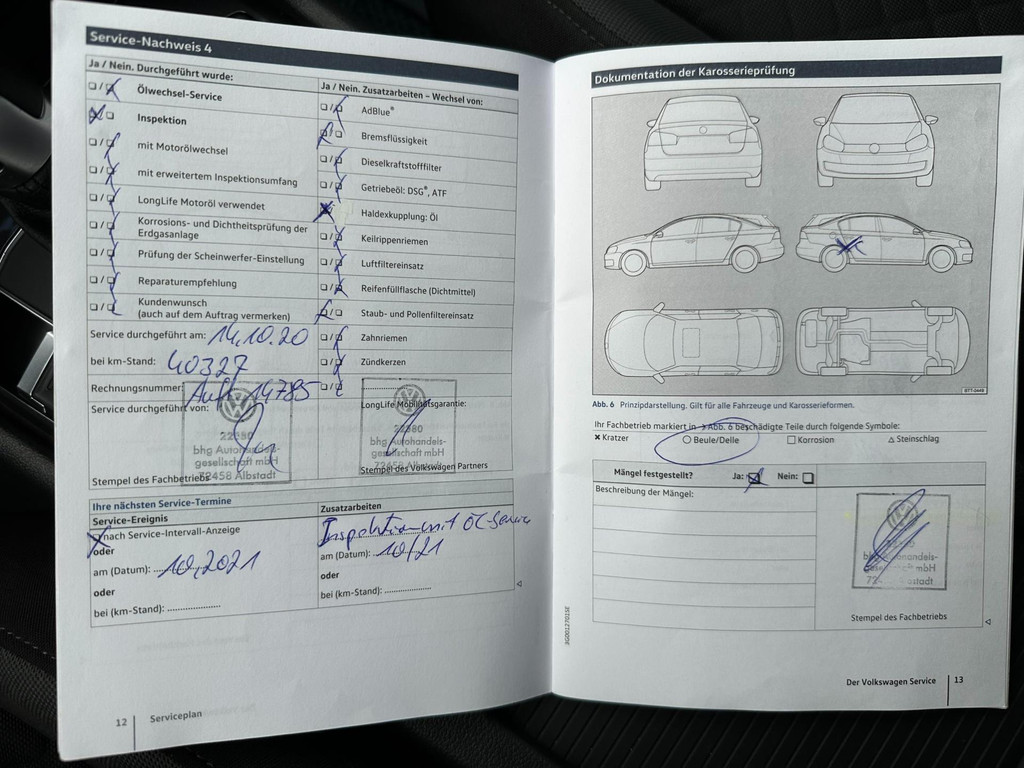 Service-Nachweis 4
Ja / Nein. Durchgeführt wurde:
Ölwechsel-Service
Inspektion
mit Motorölwechsel
mit erweitertem Inspektionsumfang
LongLife Motoröl verwendet
Korrosions- und Dichtheitsprüfung der
Erdgasanlage
Prüfung der Scheinwerfer-Einstellung
Reparaturempfehlung
Kundenwunsch
(auch auf dem Auftrag vermerken)
Service durchgeführt am: 14.10.20
bei km-Stand: 40327
Rechnungsnummer: Auft. 14785
Service durchgeführt von:
22580
bhg Autohandels-
gesellschaft mbH
72458 Albstadt
Stempel des Fachbetriebs
Ja / Nein. Zusatzarbeiten – Wechsel von:
AdBlue®
Bremsflüssigkeit
Dieselkraftstofffilter
Getriebeöl: DSG®, ATF
Haldexkupplung: Öl
Keilrippenriemen
Luftfiltereinsatz
Reifenfüllflasche (Dichtmittel)
Staub- und Pollenfiltereinsatz
Zahnriemen
Zündkerzen
LongLife Mobilitätsgarantie:
22580
bhg Autohandels-
gesellschaft mbH
72458 Albstadt
Stempel des Volkswagen Partners
Ihre nächsten Service-Termine
Service-Ereignis
nach Service-Intervall-Anzeige
oder
am (Datum): 10.2021
oder
bei (km-Stand):
Zusatzarbeiten
Inspektion mit Öl-Service
am (Datum): 10/21
oder
bei (km-Stand):
12 Serviceplan
Dokumentation der Karosserieprüfung
Abb. 6 Prinzipdarstellung. Gilt für alle Fahrzeuge und Karosserieformen.
Ihr Fachbetrieb markiert in → Abb. 6 beschädigte Teile durch folgende Symbole:
Kratzer Beule/Delle Korrosion Steinschlag
Mängel festgestellt? Ja: Nein:
Beschreibung der Mängel:
bhg Autohandels-
mbH
Stempel des Fachbetriebs
3G0012701SE
Der Volkswagen Service 13